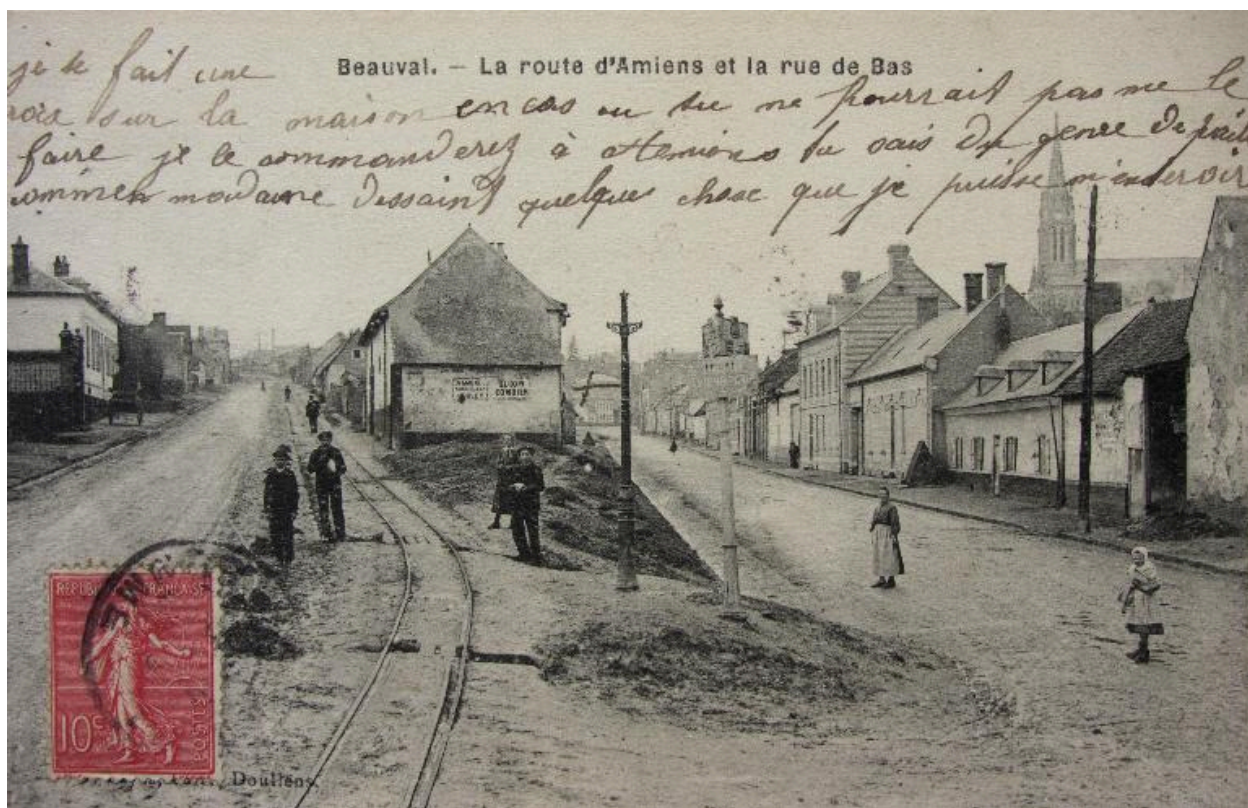 Beauval. — La route d'Amiens et la rue de Bas
je te fait une
sur la maison en cas ou tu ne pourrait pas me le
faire je le commanderez à tu sais du genre de
commen madame dessaint quelque chose que je puisse
REPUBLIQUE FRANÇAISE
10c
POSTES
Doullens